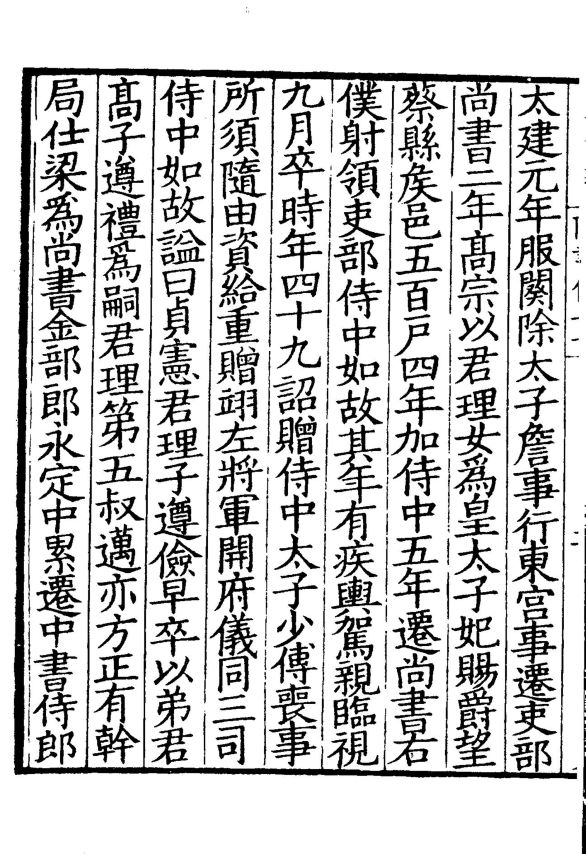 太建元年服闋除太子詹事行東宮事遷吏部
尚書二年髙宗以君理女為皇太子妃賜爵望
蔡縣矦邑五百戶四年加侍中五年遷尚書右
僕射領吏部侍中如故其年有疾輿駕親臨視
九月卒時年四十九詔贈侍中太子少傅喪事
所須隨由資給重贈翊左將軍開府儀同三司
侍中如故諡曰貞憲君理子遵儉早卒以弟君
髙子遵禮爲嗣君理第五叔邁亦方正有幹
局仕梁爲尚書金部郎永定中累遷中書侍郎